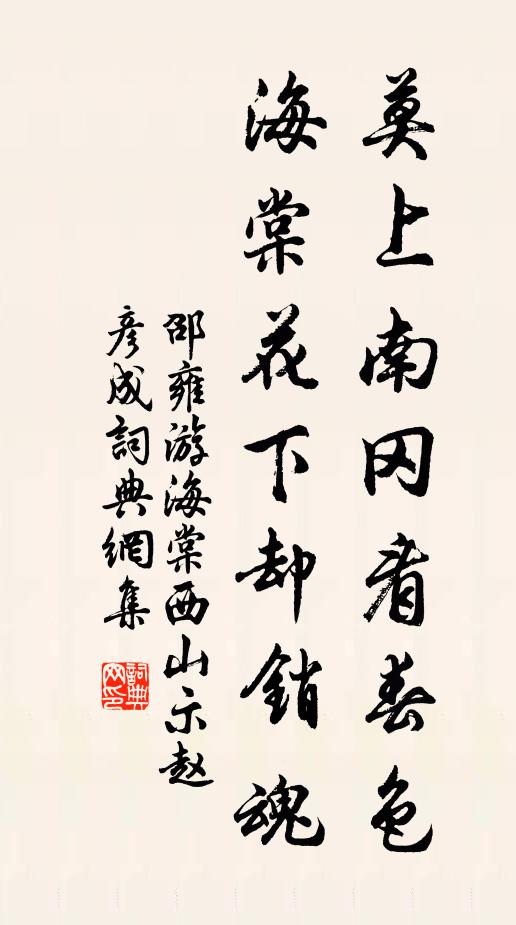 莫上南冈看春色
海棠花下却銷魂
邵雍游海棠西山示赵
彦成詞典網集
詞典
网印